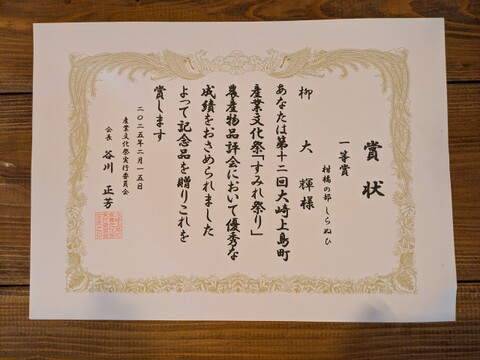 賞状
一等賞
柑橘の部 しらぬひ
柳 大輝様
あなたは第十二回大崎上島町
産業文化祭「すみれ祭り」
農産物品評会において優秀な
成績をおさめられました
よって記念品を贈りこれを
賞します
二〇二五年二月一五日
産業文化祭実行委員会
会長 谷川 正芳